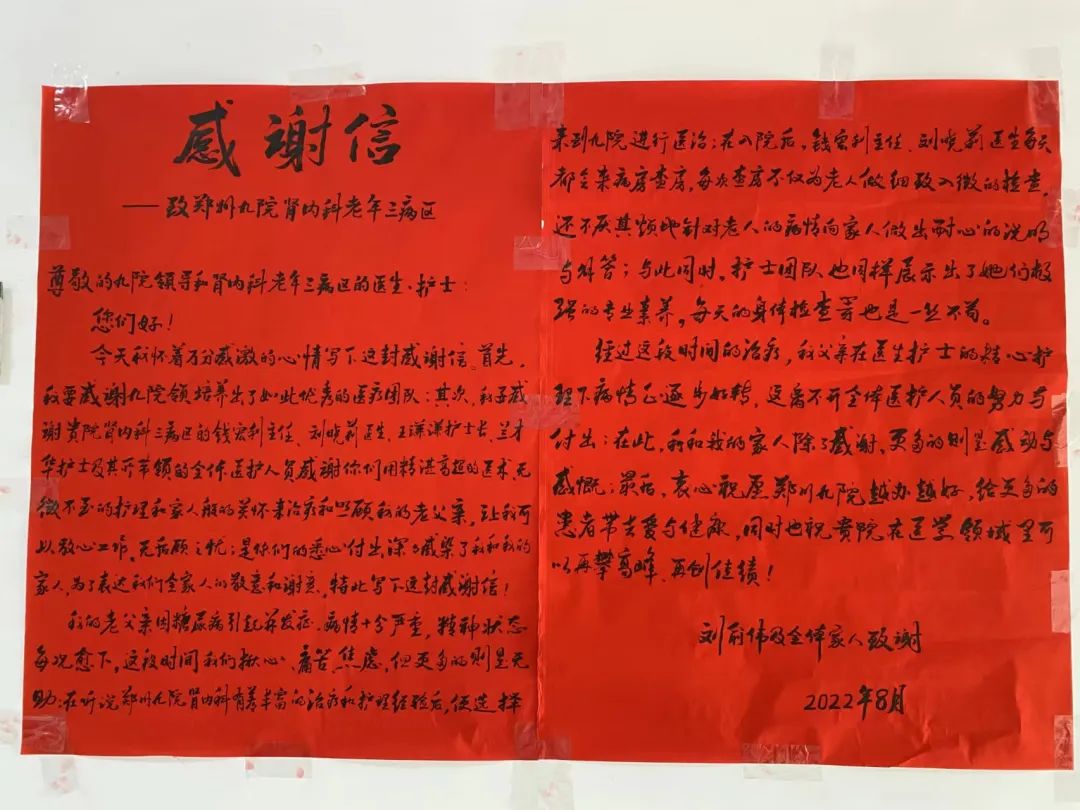 感谢信
——致郑州九院肾内科老年三病区
尊敬的九院领导和肾内科老年三病区的医生、护士：
您们好！
今天我怀着万分感激的心情写下这封感谢信。首先，
我要感谢九院领培养出了如此优秀的医疗团队；其次，我子感
谢贵院肾内科三病区的钱宏利主任、刘晓莉医生、王谦谦护士长、兰才
华护士及其所带领的全体医护人员感谢你们用精湛高超的医术、无
微不至的护理和家人般的关怀来治疗和照顾我的老父亲，让我可
以放心工作，无后顾之忧；是你们的悉心付出，深深感染了我和我的
家人，为了表达我们全家人的敬意和谢意，特此写下这封感谢信！
我的老父亲因糖尿病引起并发症、病情十分严重，精神状态
每况愈下，这段时间我们揪心、痛苦、焦虑，但更多的则是无
助；在听说郑州九院肾内科有着丰富的治疗和护理经验后，便选择
来到九院进行医治；在入院后，钱宏利主任、刘晓莉医生每天
都会来病房查房，每次查房不仅为老人做细致入微的检查，
还不厌其烦地针对老人的病情向家人做出耐心的说明
与解答；与此同时，护士团队也同样展示出了她们极
强的专业素养，每天的身体检查等也是一丝不苟。
经过这段时间的治疗，我父亲在医生护士的精心护
理下病情正逐步好转，这离不开全体医护人员的努力与
付出；在此，我和我的家人除了感谢，更多的则是感动与
感慨；最后，衷心祝愿郑州九院越办越好，给更多的
患者带去爱与健康，同时也祝贵院在医学领域里可
以再攀高峰、再创佳绩！
刘前伟及全体家人致谢
2022年8月